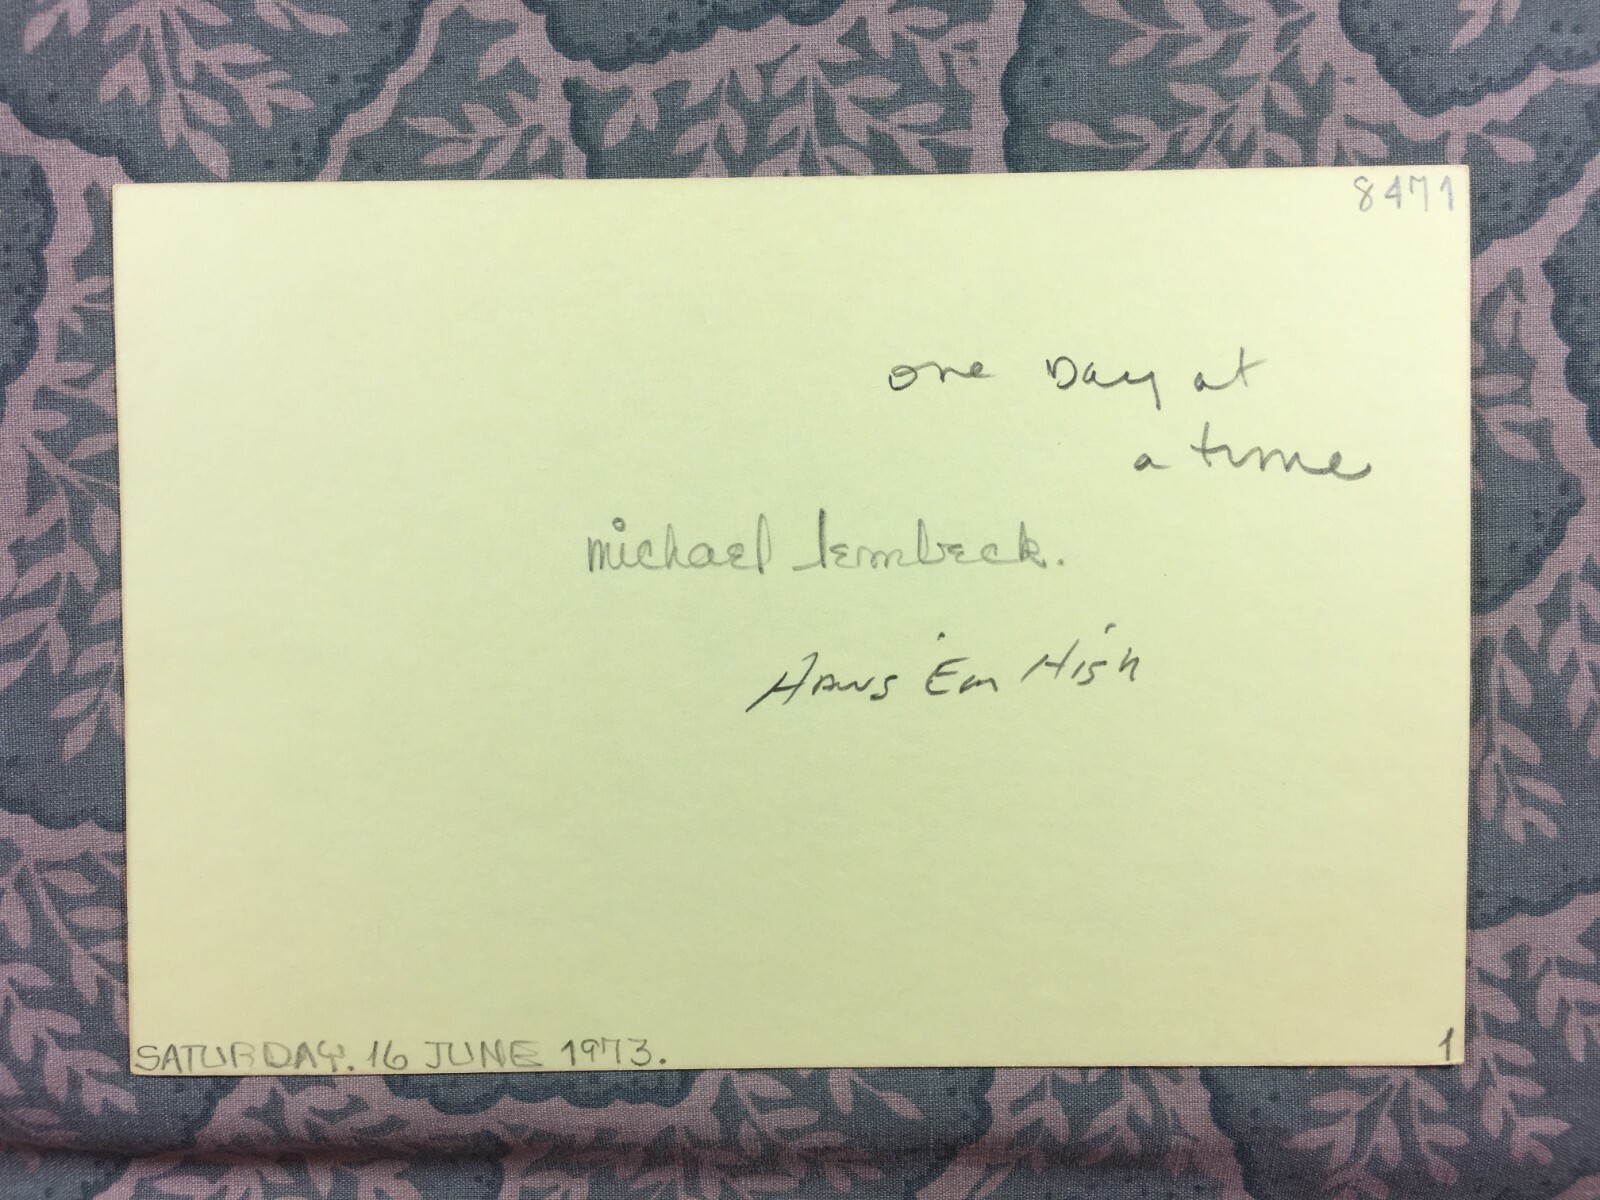 8471
one Day at
a time
michael lembeck.
HANG 'Em HigH
SATURDAY. 16 JUNE 1973.
1